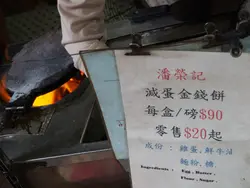 潘榮記
減蛋金錢餅
每盒/磅$90
零售$20起
成份：雞蛋,鮮牛油
麵粉,糖.
Ingredients : Egg, Butter,
Flour, Sugar.